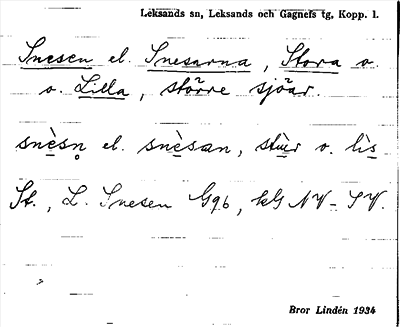 Leksands sn, Leksands och Gagnefs tg, Kopp. l.
Snesen el. Snesarna, Stora o.
o. Lilla, större sjöar.
snèsn̥ el. snèsan, stùr o. lìs
St., L. Snesen G9b, kG NV-SV.
Bror Lindén 1934